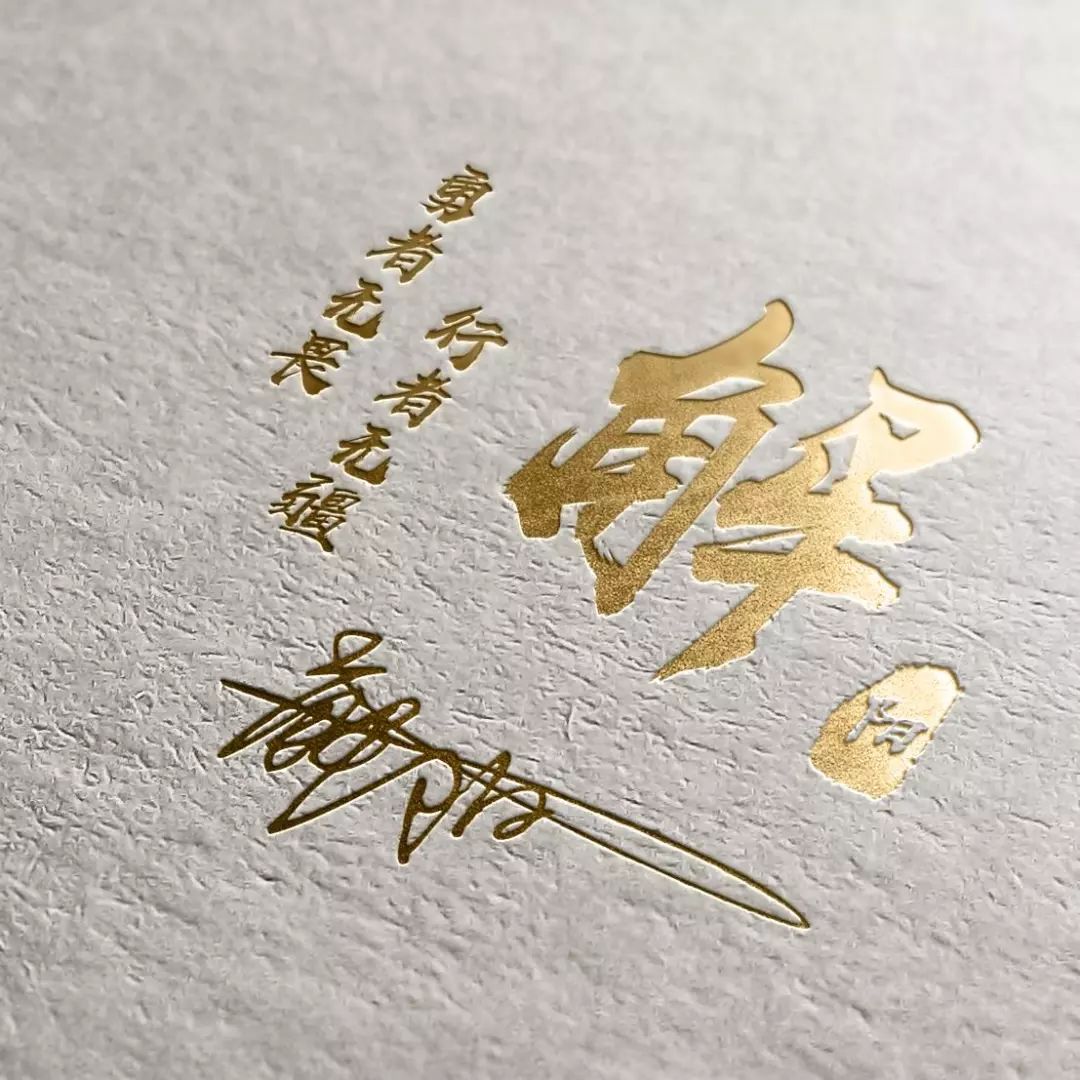 解
阳
行者无疆
勇者无畏